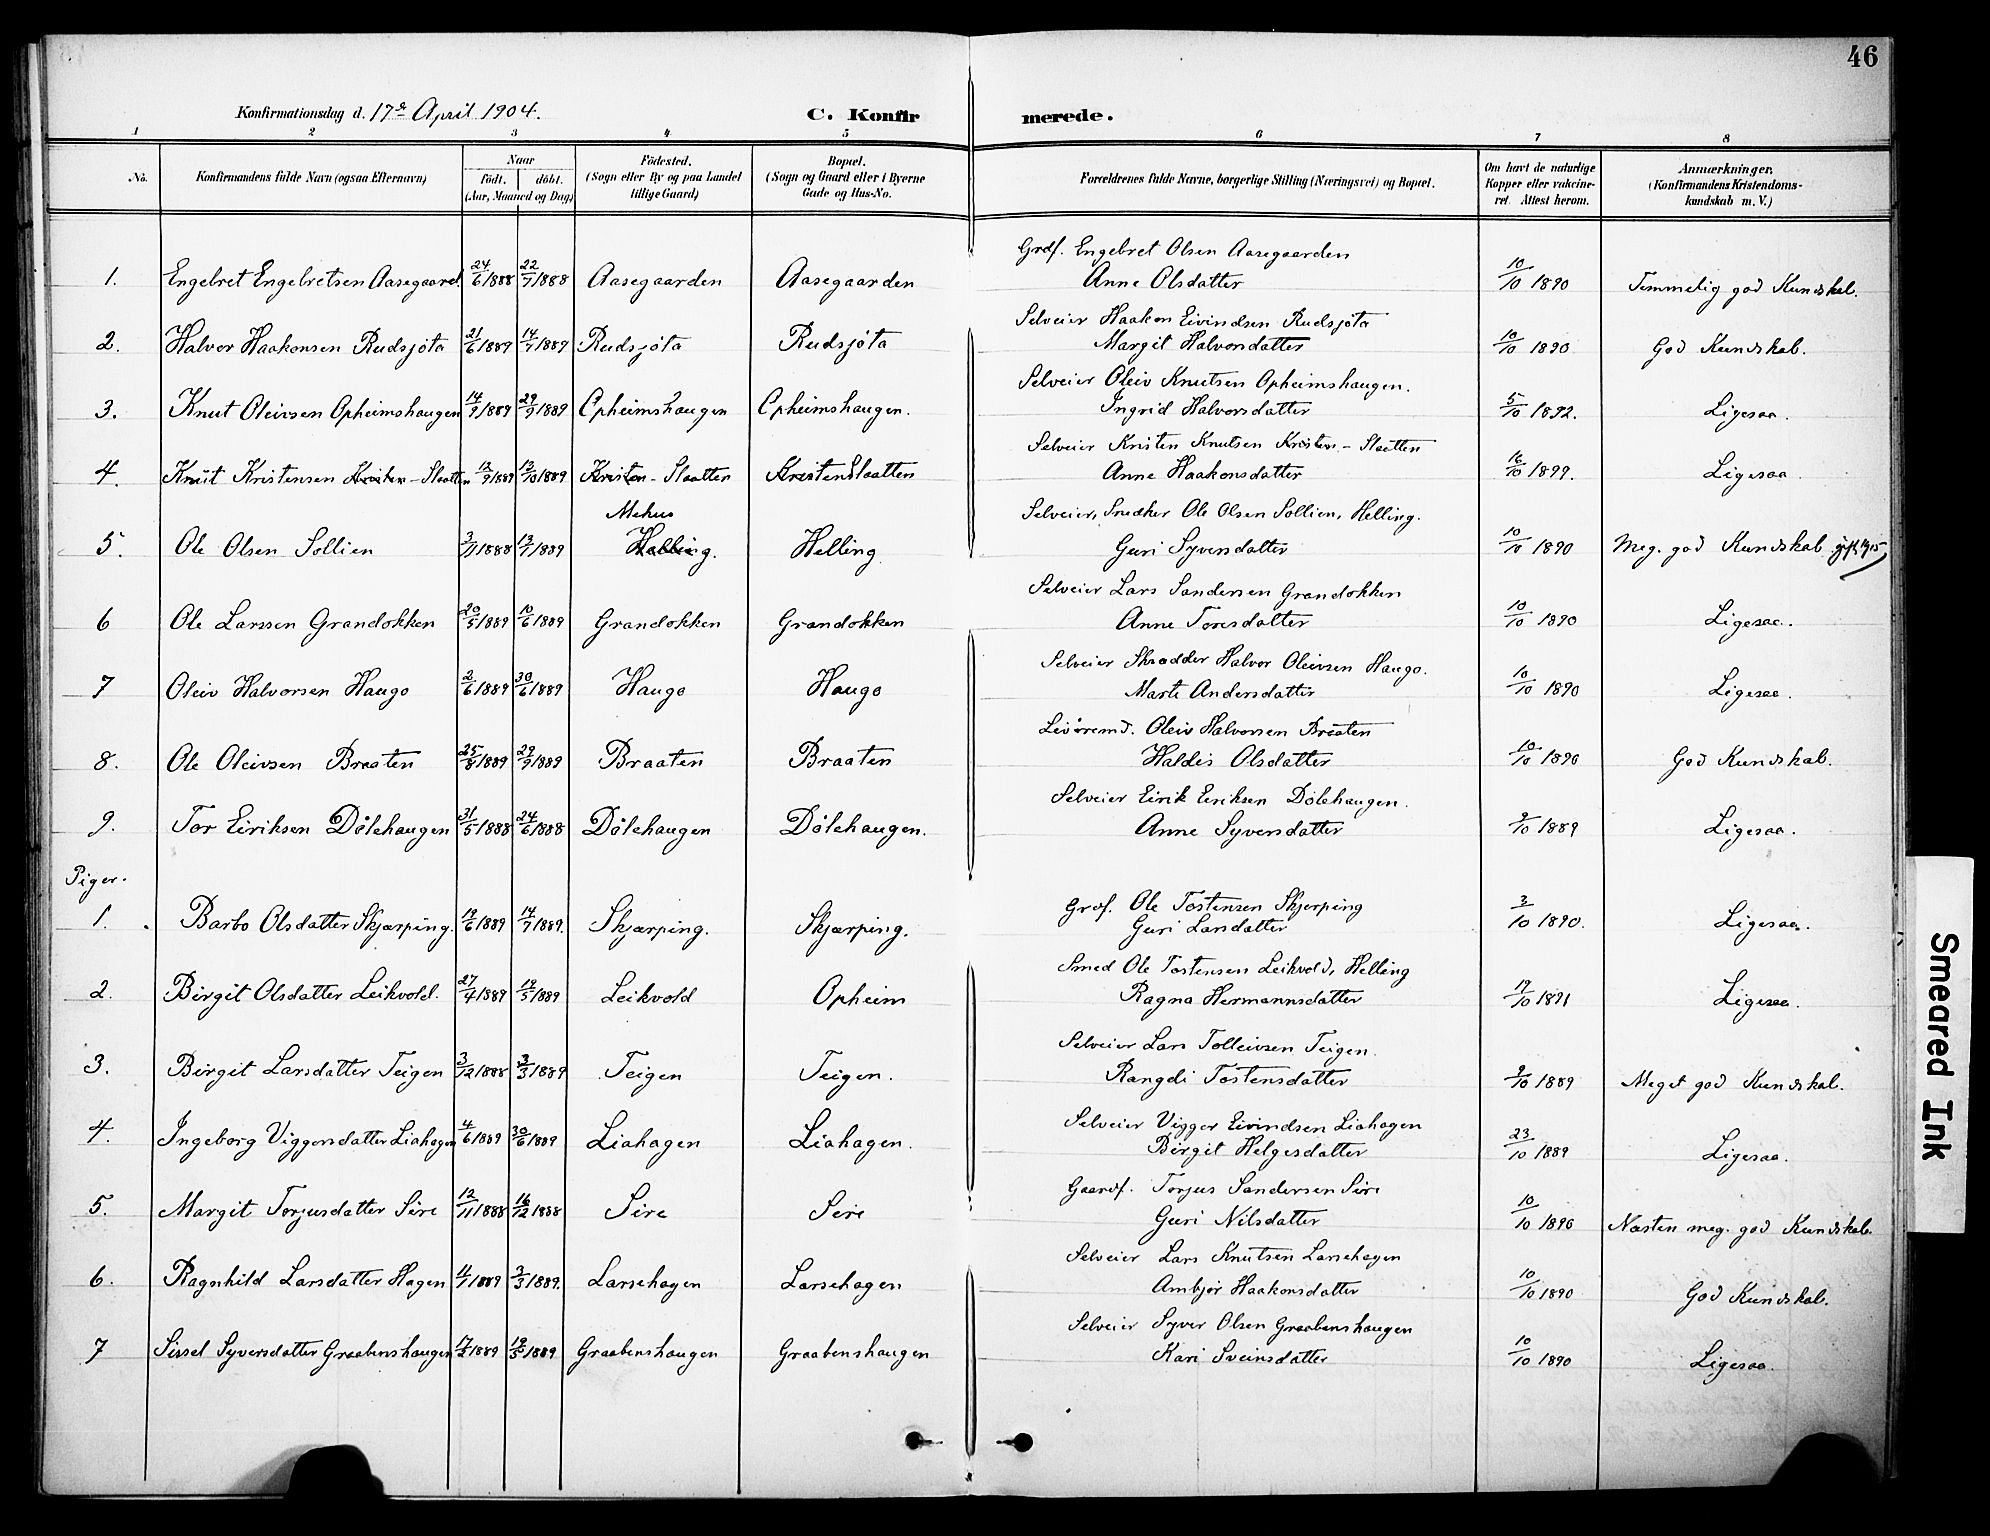 46
Konfirmationsdag d. 17de April 1904.
C. Konfirmerede.
1 2 3 4 5 6 7 8
No.
Konfirmandens fulde Navn (ogsaa Efternavn)
Naar
Födt. döbt.
(Aar, Maaned og Dag)
Födested.
(Sogn eller By og paa Landet
tillige Gaard)
Bopæl.
(Sogn og Gaard eller i Byerne
Gade og Hus-No.
Forældrenes fulde Navne, borgerlige Stilling (Næringsvei) og Bopæl.
Om havt de naturlige
Kopper eller vakcine-
ret. Attest herom.
Anmærkninger.
(Konfirmandens Kristendoms-
kundskab m. V.)
Grdf. Engebret Olsen Aasegaarden
1. Engebret Engebretsen Aasegaard. 24/6 1888 22/7 1888 Aasegaarden Aasegaarden Anne Olsdatter 10/10 1890 Temmelig god Kundskab.
Selveier Haakon Eivindsen Rudsjöta
2. Halvor Haakonsen Rudsjöta 21/6 1889 14/7 1889 Rudsjöta Rudsjöta Margit Halvorsdatter 10/10 1890 God Kundskab.
Selveier Oleiv Knutsen Opheimshaugen.
3. Knut Oleivsen Opheimshaugen 14/9 1889 29/9 1889 Opheimshaugen Opheimshaugen. Ingrid Halvorsdatter 5/10 1892. Ligesaa.
Selveier Kristen Knutsen Kristen-Slaatten
4. Knut Kristensen Kristen-Slaatten 12/9 1889 13/10 1889 Kristen-Slaatten Kristenslaatten Anne Haakonsdatter 16/10 1899. Ligesaa
Mehus
Selveier, Snedker Ole Olsen Sollien, Helling.
5. Ole Olsen Sollien 3/11 1888 13/1 1889 Helling. Helling Guri Syversdatter 10/10 1890 Meg. god Kundskab gift 1915
Selveier Lars Sandersen Grandokken
6 Ole Larssen Grandokken 20/5 1889 10/6 1889 Grandokken Grandokken Anne Toresdatter 10/10 1890 Ligesaa.
Selveier Skrædder Halvor Oleivsen Haugo.
7 Oleiv Halvorsen Haugo 2/6 1889 30/6 1889 Haugo Haugo Marte Andersdatter 10/10 1890 Ligesaa.
Leiöremd. Oleiv Halvorsen Braaten
8. Ole Oleivsen Braaten 25/8 1889 29/9 1889 Braaten Braaten Haldis Olsdatter 10/10 1890 God Kundskab.
Selveier Eirik Eiriksen Dölehaugen.
9. Tor Eiriksen Dölehaugen 31/5 1888 24/6 1888 Dölehaugen Dölehaugen. Anne Syversdatter 9/10 1889 Ligesaa.
Piger.
Grdf. Ole Tostensen Skjærping
1. Barbo Olsdatter Skjærping. 19/6 1889 14/7 1889. Skjærping. Skjærping. Guri Larsdatter 3/10 1890. Ligesaa.
Smed Ole Tostensen Leikvold, Helling
2. Birgit Olsdatter Leikvold. 27/4 1889 19/5 1889 Leikvold Opheim Ragna Hermannsdatter 17/10 1891 Ligesaa.
Selveier Lars Tolleivsen Teigen.
3. Birgit Larsdatter Teigen 3/12 1888 3/3 1889 Teigen Teigen. Rangdi Tostensdatter 9/10 1889 Meget god Kundskab.
Selveier Vigger Eivindsen Liahagen
4. Ingeborg Viggersdatter Liahagen 4/6 1889 30/6 1889 Liahagen Liahagen. Birgit Helgesdatter 23/10 1889 Ligesaa.
Gaardf. Torjus Sandersen Sire
5. Margit Torjusdatter Sire 12/11 1888 16/12 1888 Sire Sire Guri Nilsdatter 10/10 1890 Næsten meg. god Kundskab.
Selveier Lars Knutsen Larsehagen
6. Ragnhild Larsdatter Hagen 4/1 1889 3/3 1889. Larsehagen Larsehagen Ambjör Haakonsdatter 10/10 1890 God Kundskab.
Selveier Syver Olsen Graabenshaugen
7 Sissel Syversdatter Graabenshaugen 17/2 1889 19/5 1889 Graabenshaugen Graabenshaugen Kari Sveinsdatter 10/10 1890 Ligesaa.
Smeared Ink